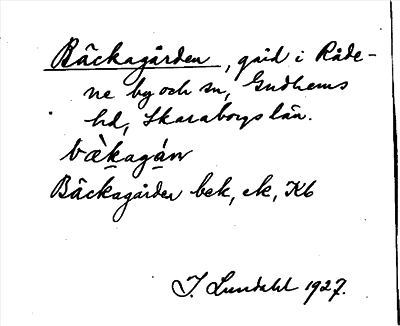 Bäckagården, gård i Råde-
ne by och sn, Gudhems
hd, Skaraborgs län.
bæ̀kagáṇ
Bäckagården bek, ek, Kb
I. Lundahl 1927.